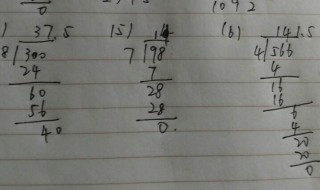 0
1092
) 37.5
8)300
24
60
56
40
(5) 14
7)98
7
28
28
0.
(6) 141.5
4)566
4
16
16
6
4
20
20
0